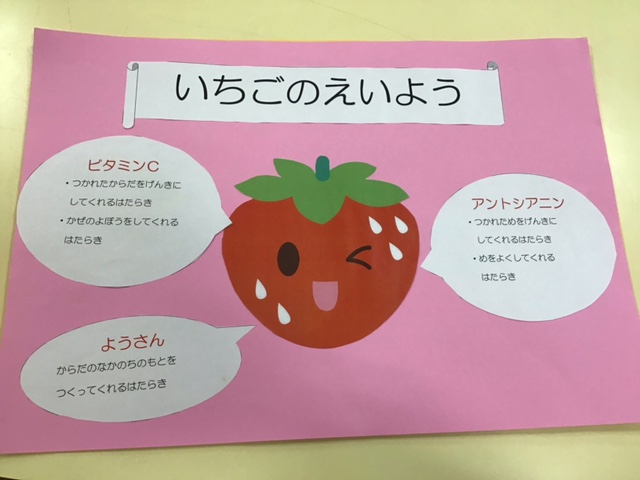 いちごのえいよう
ビタミンC
・つかれたからだをげんきに
してくれるはたらき
・かぜのよぼうをしてくれる
はたらき
アントシアニン
・つかれためをげんきに
してくれるはたらき
・めをよくしてくれる
はたらき
ようさん
からだのなかのちのもとを
つくってくれるはたらき